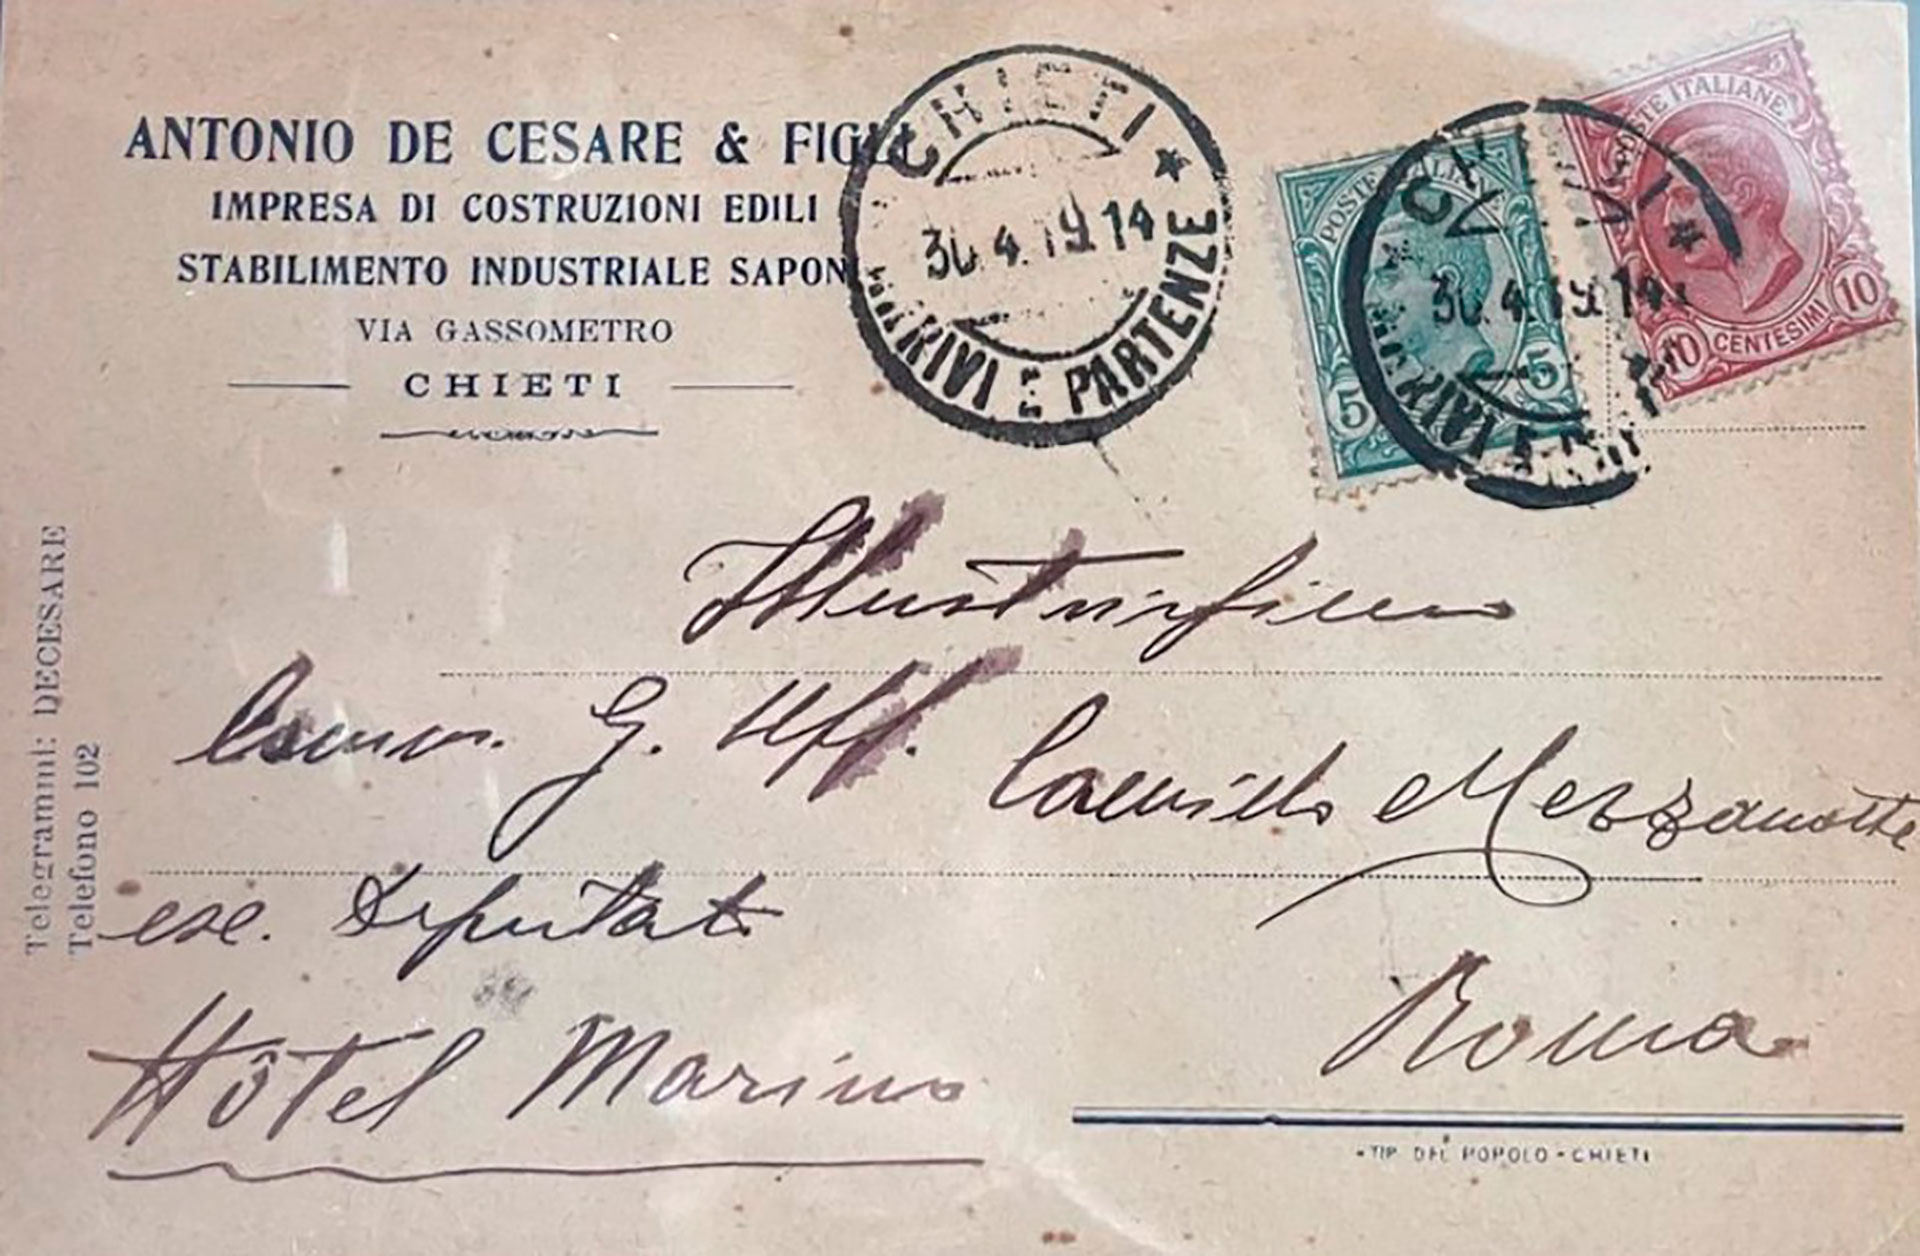 ANTONIO DE CESARE & FIGLI
IMPRESA DI COSTRUZIONI EDILI
STABILIMENTO INDUSTRIALE SAPON
VIA GASSOMETRO
CHIETI
Telegrammi: DECESARE
Telefono 102
CHIETI *
30.4.19.14
ARRIVI E PARTENZE
POSTE ITALIANE
5 5
POSTE ITALIANE
10 CENTESIMI 10
CHIETI *
30.4.19.14
ARRIVI E
Illustrissimo
Comm. G. Uff. Camillo Mezzanotte
exe. Deputato
Roma
Hôtel Marino
-TIP. DEL POPOLO-CHIETI